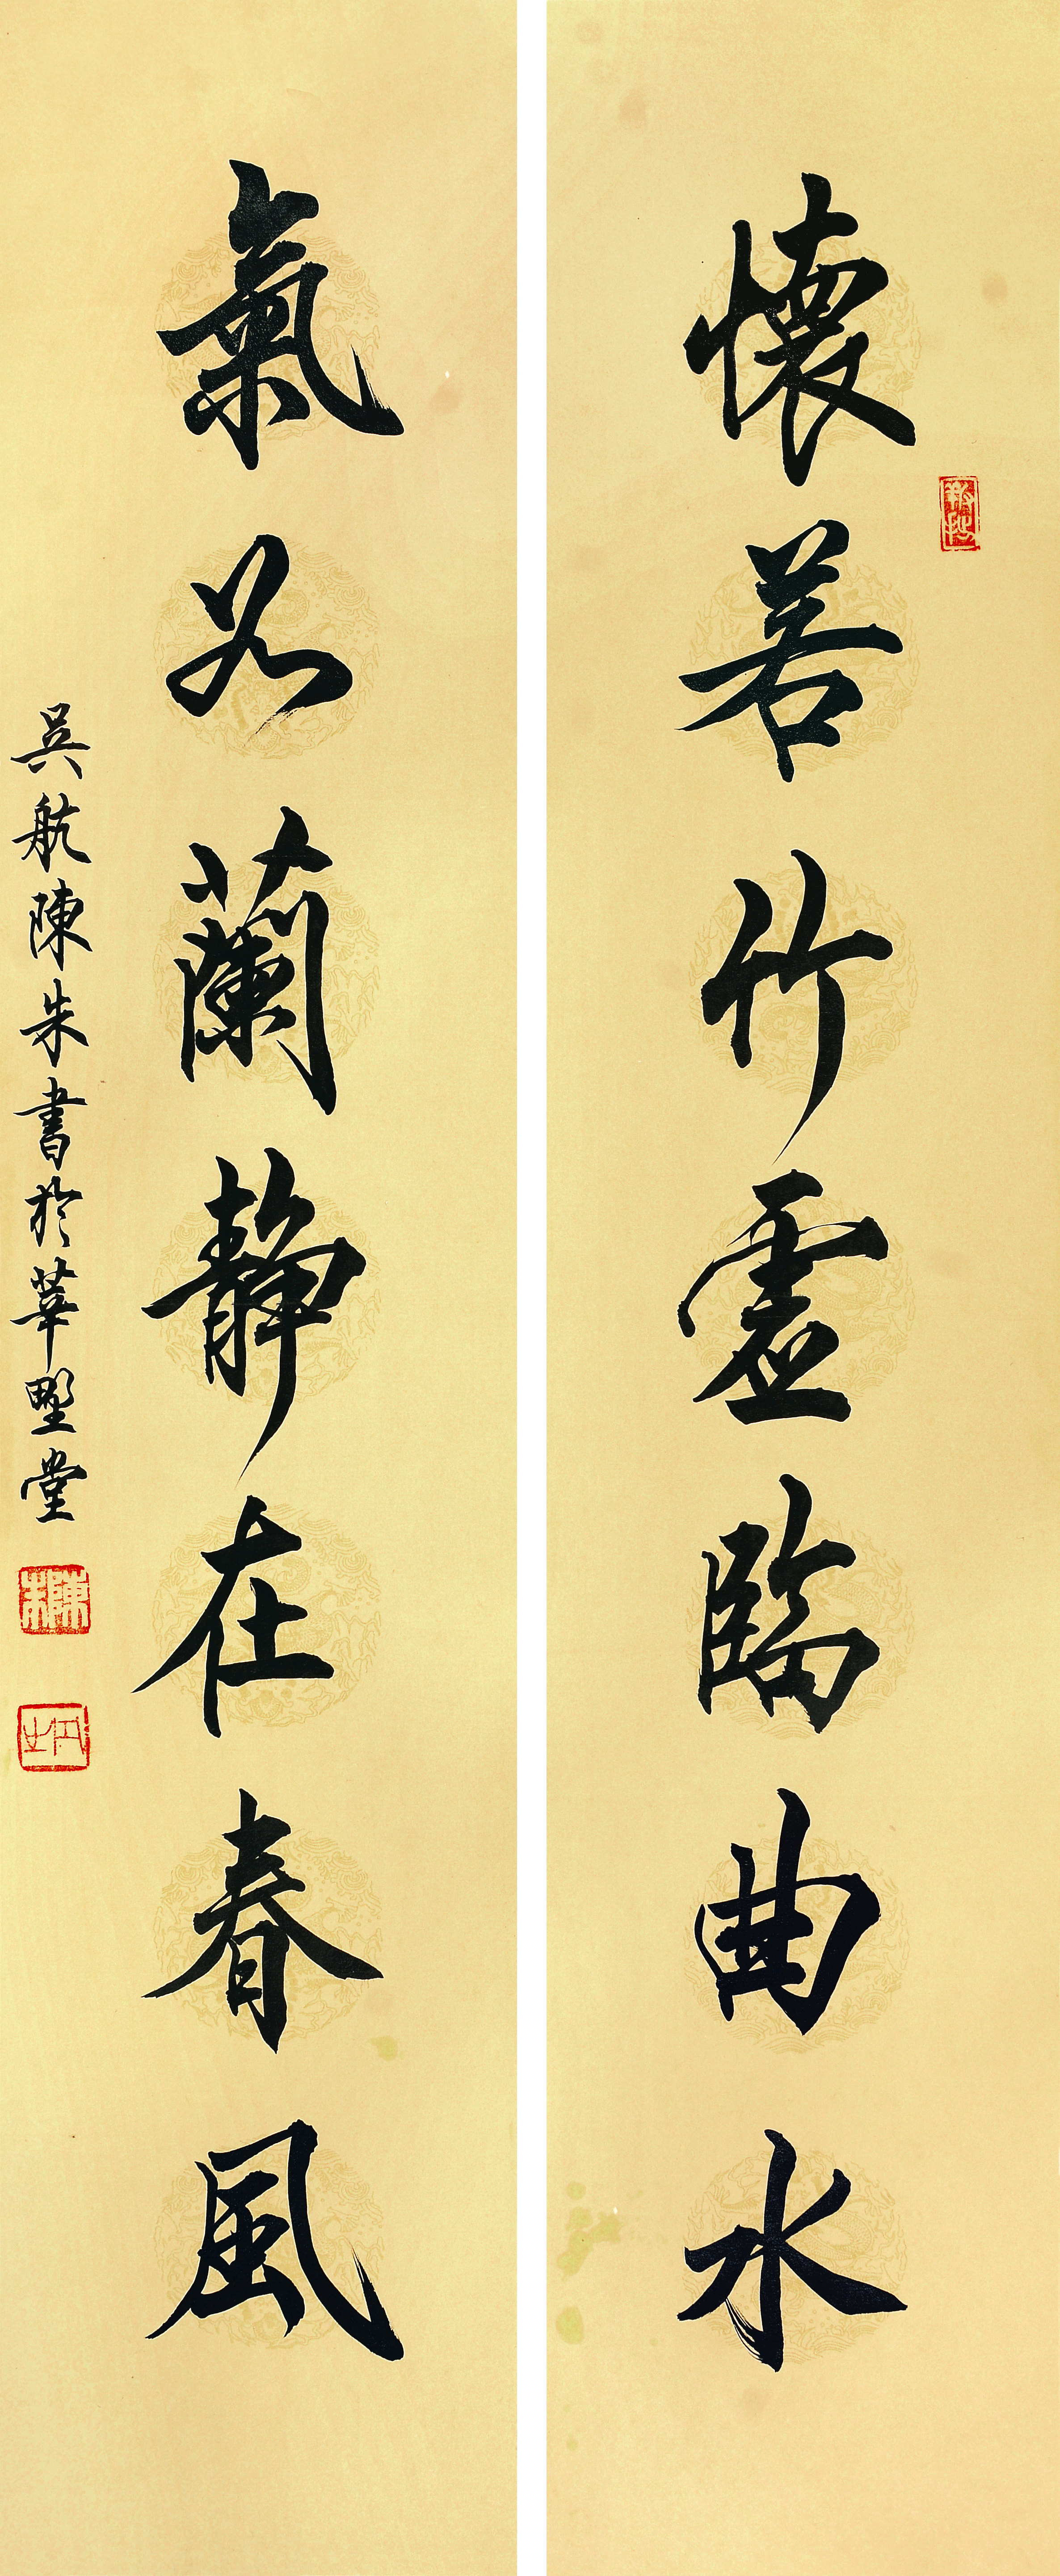 懷若竹虛臨曲水
氣如蘭靜在春風
吳航陳朱書於莘野堂
陳朱